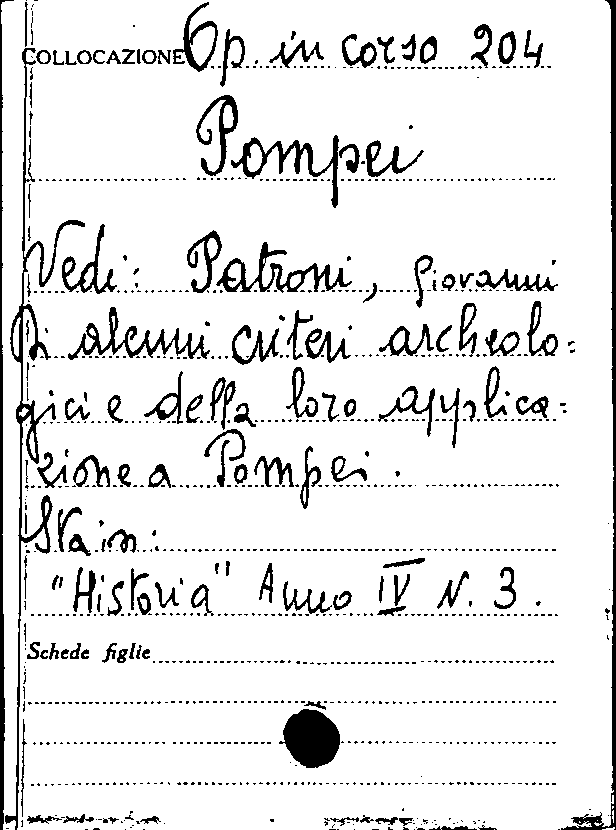 COLLOCAZIONE Op. in corso 204
Pompei
Vedi: Patroni, Giovanni
Di alcuni criteri archeolo=
gici e della loro applica=
zione a Pompei.
Sta in:
"Historia" Anno IV N. 3.
Schede figlie